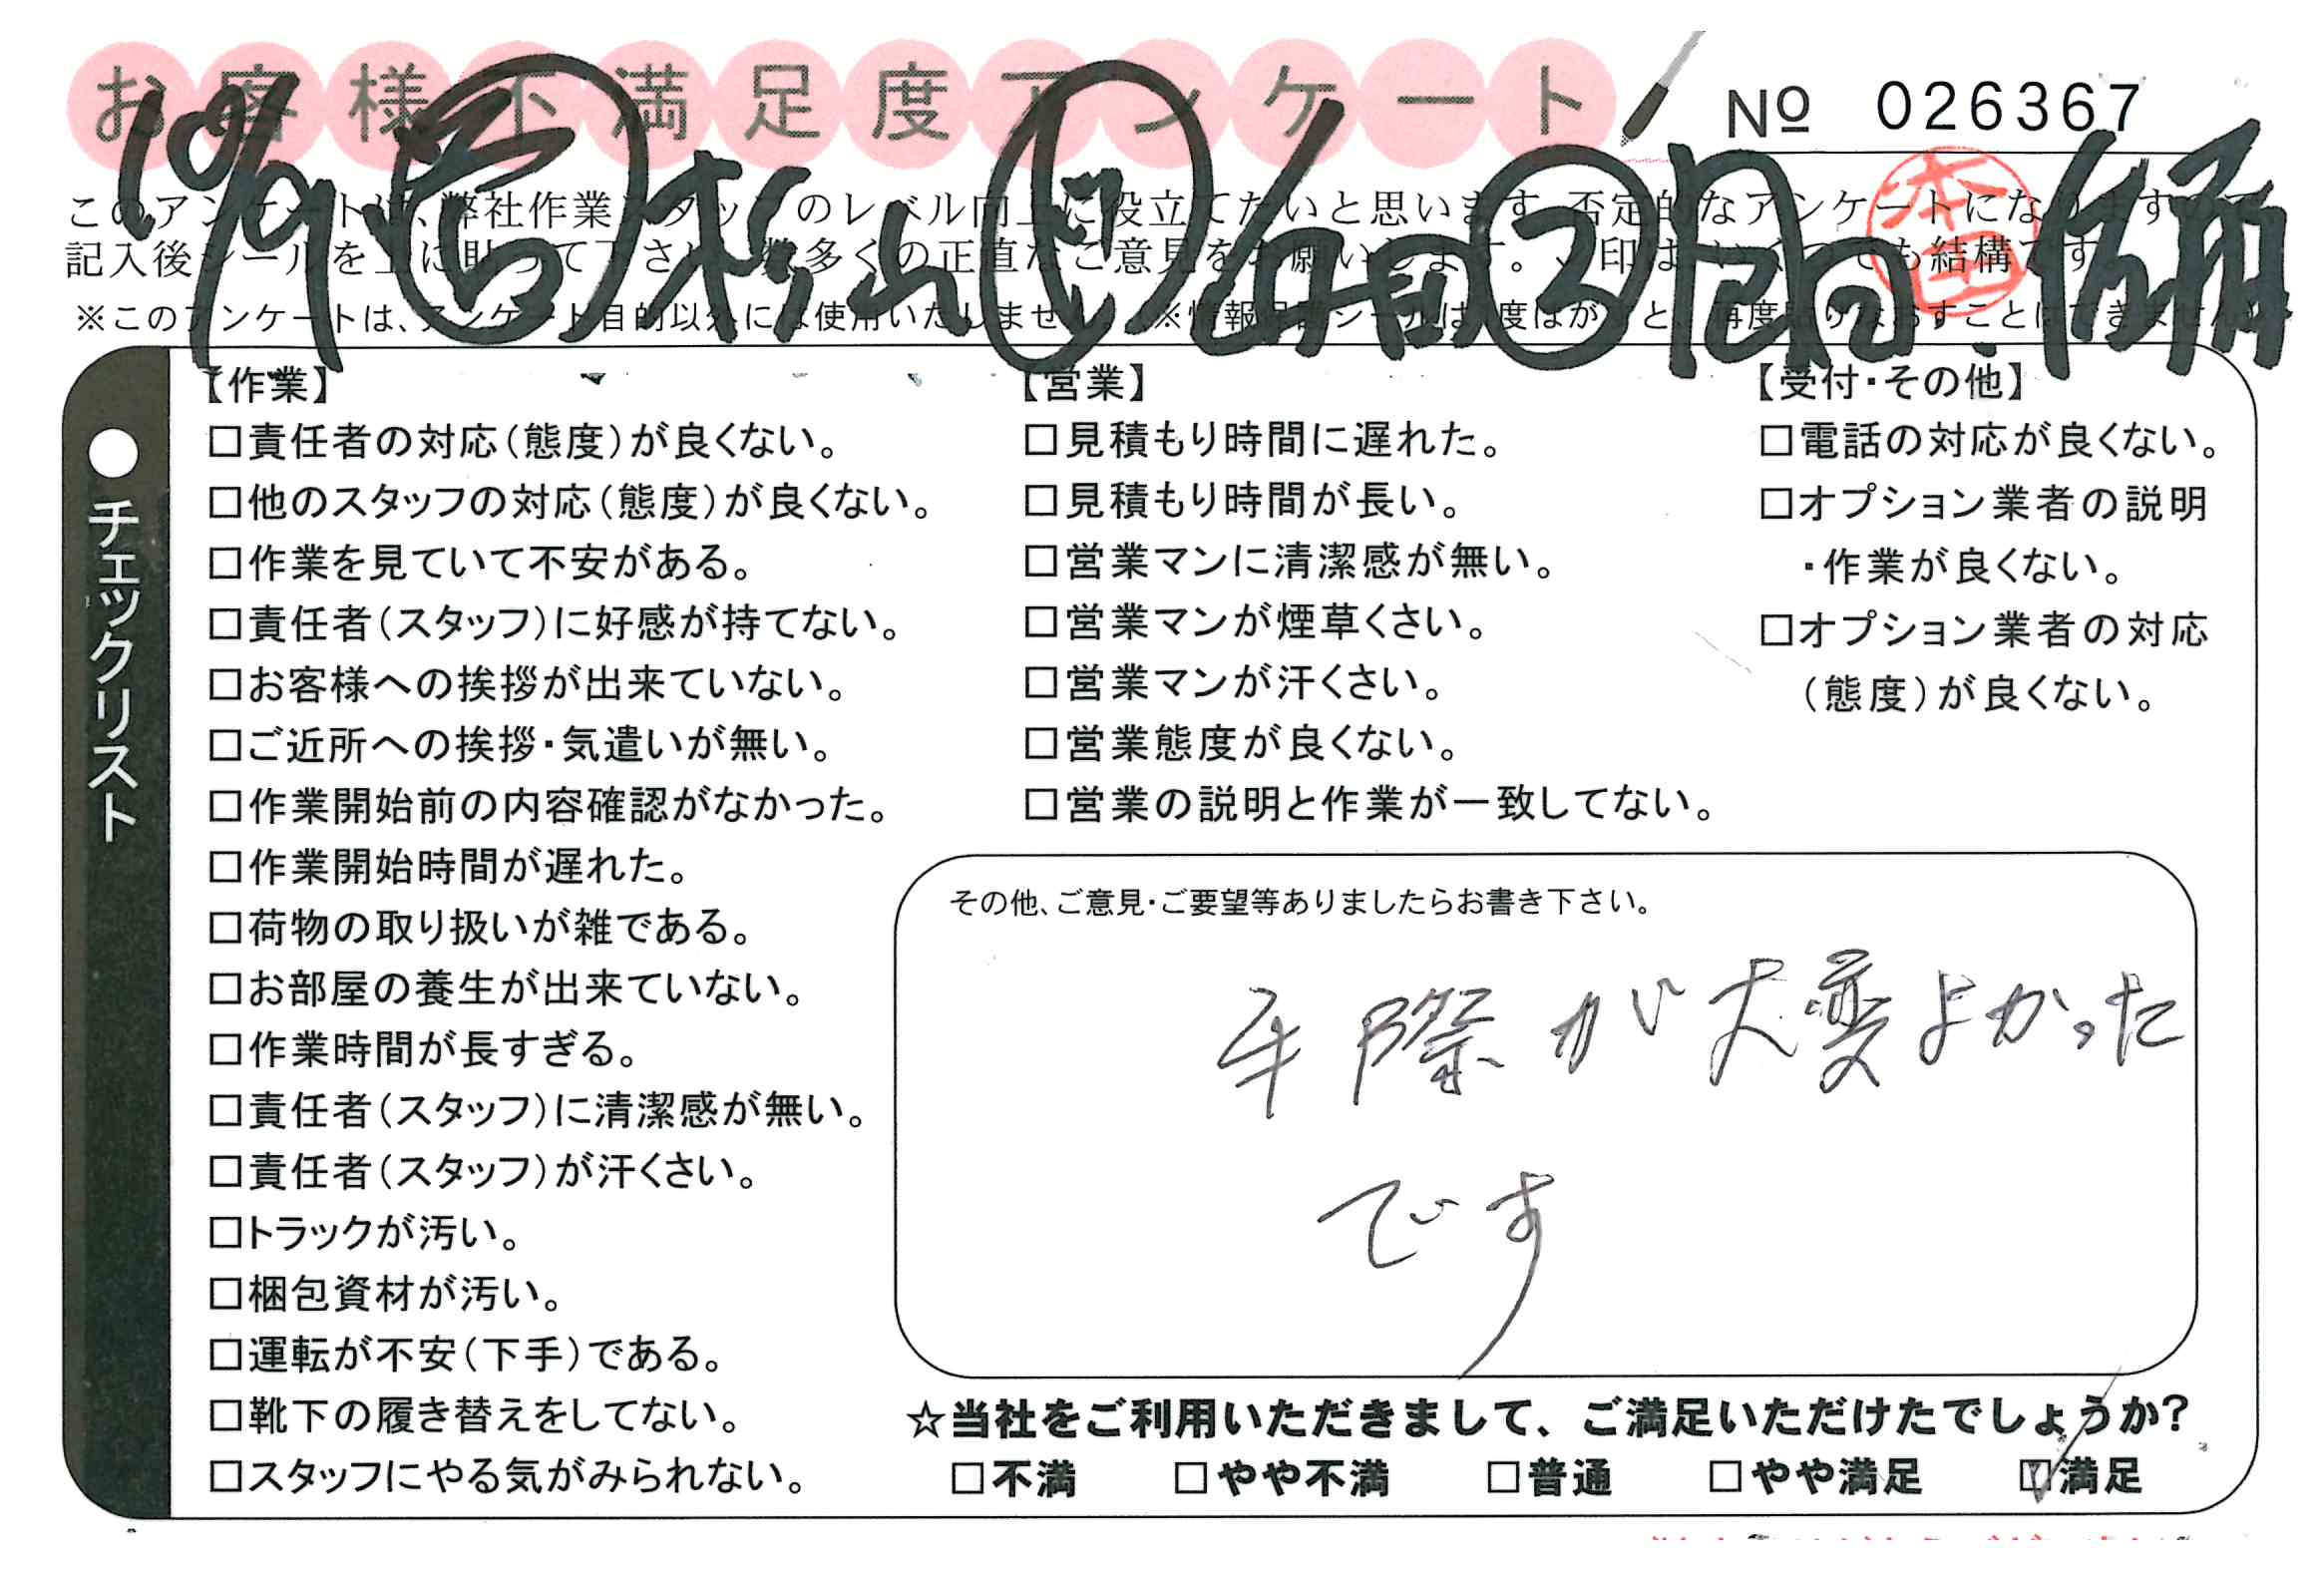 お客様不満足度アンケート
№ 026367
10/9
杉山
②
本田
このアンケートは、弊社作業スタッフのレベル向上に役立てたいと思います。否定的なアンケートになりますので
記入後シールを上に貼って下さい。数多くの正直なご意見をお願いします。✓印はいくつでも結構です
※このアンケートは、アンケート目的以外には使用いたしません。※情報保護シールは1度はがすと、再度貼りなおすことはできません。
●チェックリスト
【作業】
□責任者の対応(態度)が良くない。
□他のスタッフの対応(態度)が良くない。
□作業を見ていて不安がある。
□責任者(スタッフ)に好感が持てない。
□お客様への挨拶が出来ていない。
□ご近所への挨拶・気遣いが無い。
□作業開始前の内容確認がなかった。
□作業開始時間が遅れた。
□荷物の取り扱いが雑である。
□お部屋の養生が出来ていない。
□作業時間が長すぎる。
□責任者(スタッフ)に清潔感が無い。
□責任者(スタッフ)が汗くさい。
□トラックが汚い。
□梱包資材が汚い。
□運転が不安(下手)である。
□靴下の履き替えをしてない。
□スタッフにやる気がみられない。
【営業】
□見積もり時間に遅れた。
□見積もり時間が長い。
□営業マンに清潔感が無い。
□営業マンが煙草くさい。
□営業マンが汗くさい。
□営業態度が良くない。
□営業の説明と作業が一致してない。
【受付・その他】
□電話の対応が良くない。
□オプション業者の説明
・作業が良くない。
□オプション業者の対応
(態度)が良くない。
その他、ご意見・ご要望等ありましたらお書き下さい。
手際が大変よかった
です
☆当社をご利用いただきまして、ご満足いただけたでしょうか?
□不満 □やや不満 □普通 □やや満足 ☑満足